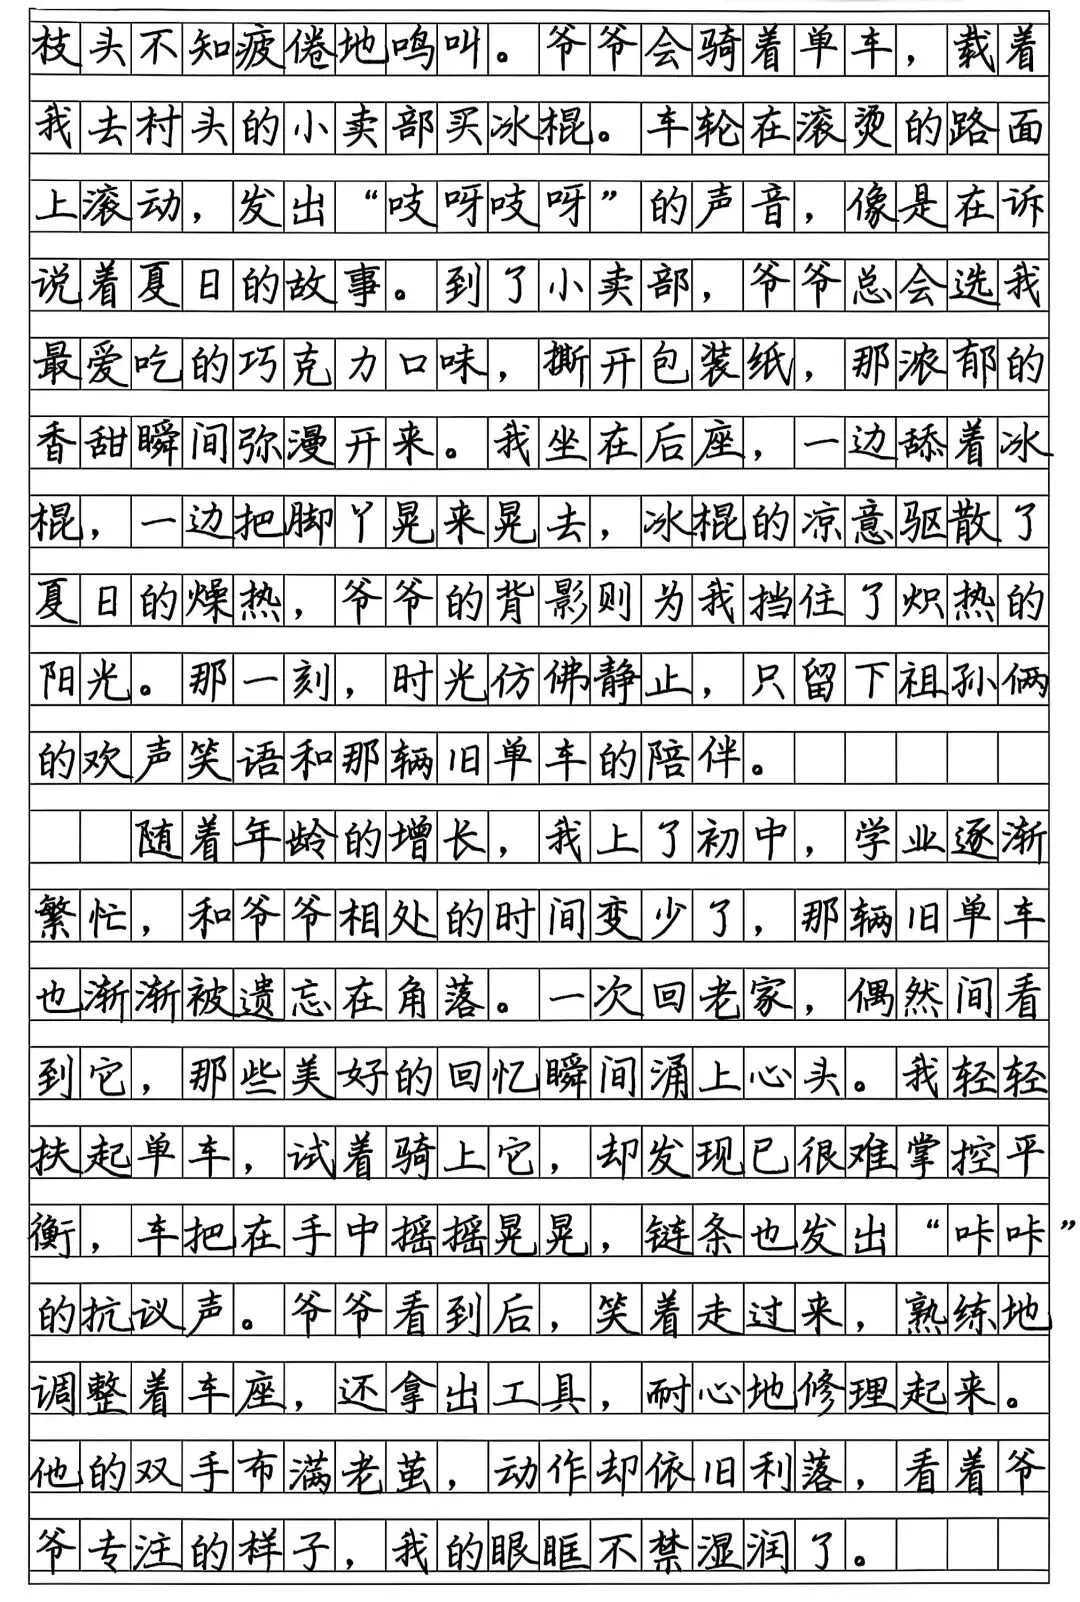 枝头不知疲倦地鸣叫。爷爷会骑着单车，载着
我去村头的小卖部买冰棍。车轮在滚烫的路面
上滚动，发出“吱呀吱呀”的声音，像是在诉
说着夏日的故事。到了小卖部，爷爷总会选我
最爱吃的巧克力口味，撕开包装纸，那浓郁的
香甜瞬间弥漫开来。我坐在后座，一边舔着冰
棍，一边把脚丫晃来晃去，冰棍的凉意驱散了
夏日的燥热，爷爷的背影则为我挡住了炽热的
阳光。那一刻，时光仿佛静止，只留下祖孙俩
的欢声笑语和那辆旧单车的陪伴。
随着年龄的增长，我上了初中，学业逐渐
繁忙，和爷爷相处的时间变少了，那辆旧单车
也渐渐被遗忘在角落。一次回老家，偶然间看
到它，那些美好的回忆瞬间涌上心头。我轻轻
扶起单车，试着骑上它，却发现已很难掌控平
衡，车把在手中摇摇晃晃，链条也发出“咔咔”
的抗议声。爷爷看到后，笑着走过来，熟练地
调整着车座，还拿出工具，耐心地修理起来。
他的双手布满老茧，动作却依旧利落，看着爷
爷专注的样子，我的眼眶不禁湿润了。